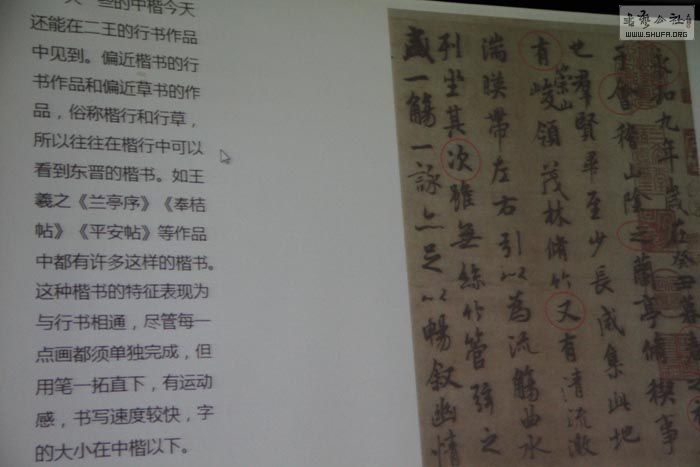 一些的中楷今天
还能在二王的行书作品
中见到。偏近楷书的行
书作品和偏近草书的作
品，俗称楷行和行草，
所以往往在楷行中可以
看到东晋的楷书。如王
羲之《兰亭序》《奉桔
帖》《平安帖》等作品
中都有许多这样的楷书。
这种楷书的特征表现为
与行书相通，尽管每一
点画都须单独完成，但
用笔一拓直下，有运动
感，书写速度较快，字
的大小在中楷以下。
永和九年歲在癸丑暮
于會稽山陰之蘭亭脩稧事
也群賢畢至少長咸集此地
有崇山峻領茂林脩竹又有清流激
湍暎帶左右引以為流觴曲水
列坐其次雖無絲竹管弦之
盛一觴一詠亦足以暢叙幽情
WWW.SHUFA.ORG